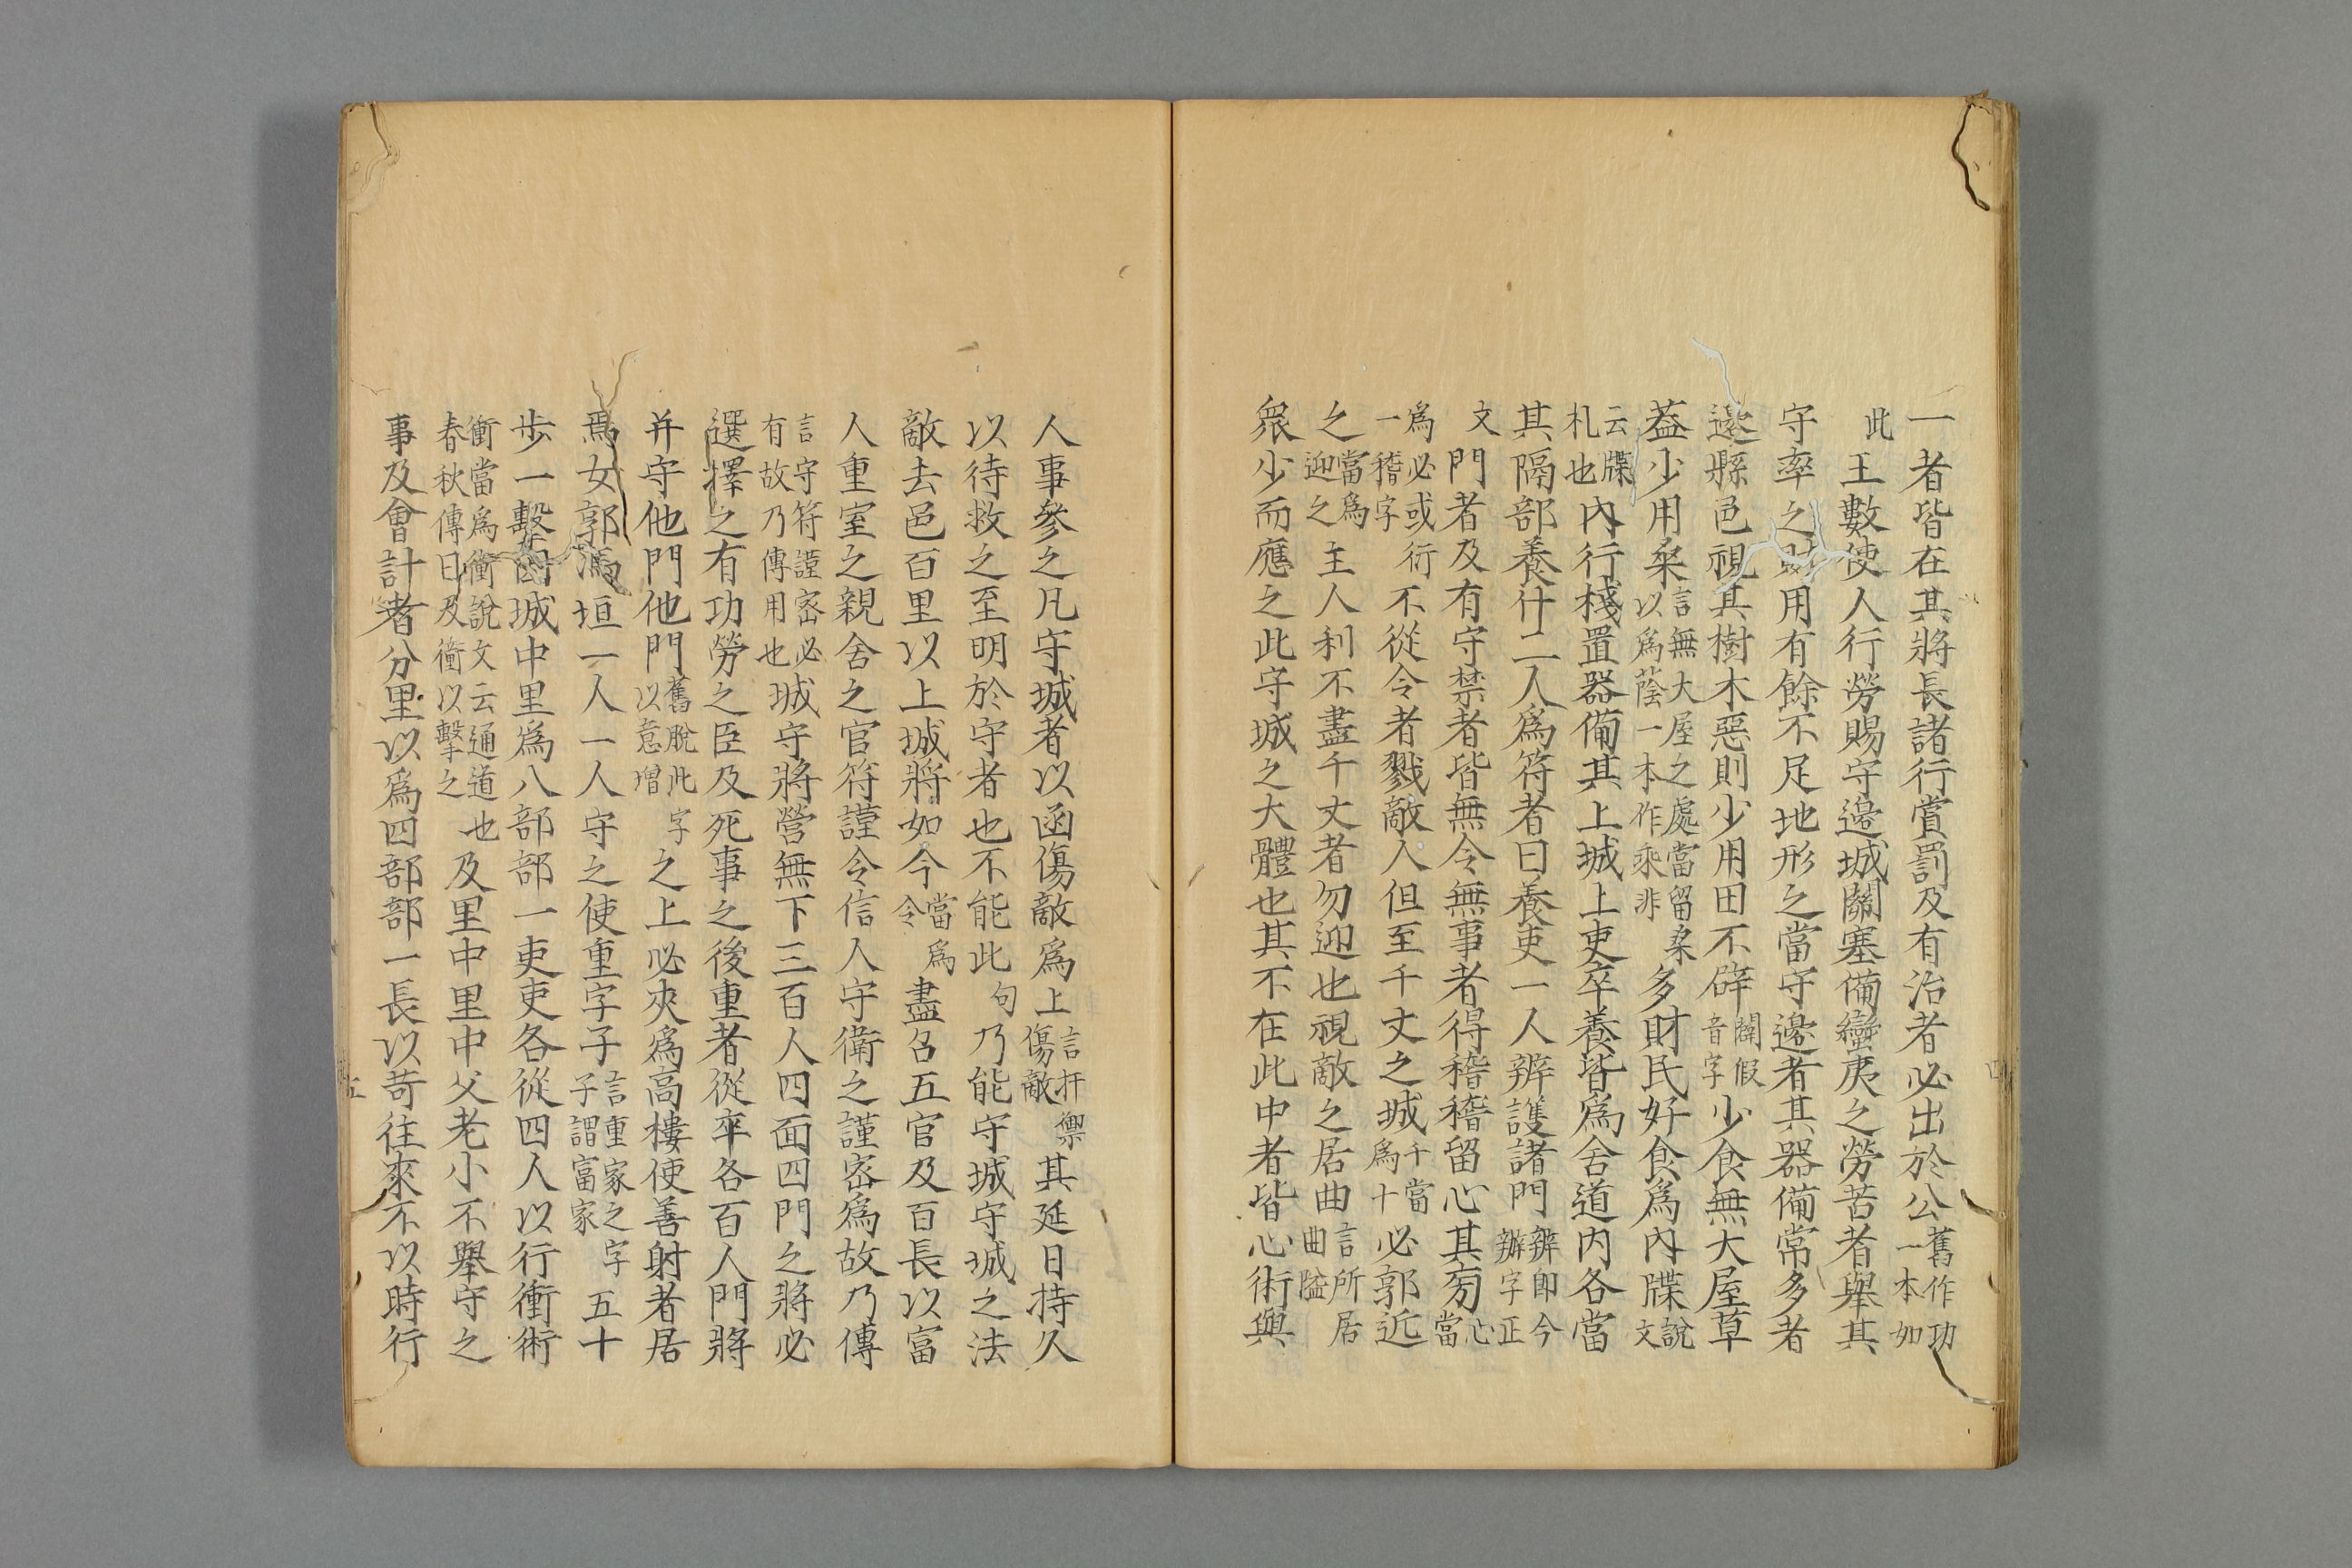 一者皆在其將長諸行賞罰及有治者必出於公舊作功一本如
此王數使人行勞賜守邊城關塞備蠻夷之勞苦者舉其
守率之財用有餘不足地形之當守邊者其器備常多者
邊縣邑視其樹木惡則少用田不辟闢假音字少食無大屋草
葢少用桒言無大屋之處當留桒以爲蔭一本作乘非多財民好食爲內牒說文
云牒札也內行棧置器備其上城上吏卒養皆爲舍道內各當
其隔部養什二人爲符者曰養吏一人辨護諸門辨卽今辦字正
文門者及有守禁者皆無令無事者得稽稽留心其㫄心當
爲必或衍一稽字不從令者戮敵人但至千丈之城千當爲十必郭近
之當爲迎之主人利不盡千丈者勿迎也視敵之居曲言所居曲隘
衆少而應之此守城之大體也其不在此中者皆心術與
人事參之凡守城者以函傷敵爲上言扞禦傷敵其延日持久
以待救之至明於守者也不能此句乃能守城守城之法
敵去邑百里以上城將如今當爲令盡召五官及百長以富
人重室之親舍之官符謹令信人守衛之謹宻爲故乃傳
言守符謹宻必有故乃傳用也城守將營無下三百人四面四門之將必
選擇之有功勞之臣及死事之後重者從卒各百人門將
并守他門他門舊脫此字以意增之上必夾爲高樓使善射者居
焉女郭馮垣一人一人守之使重字子言重家之字子謂富家五十
步一擊因城中里爲八部部一吏吏各從四人以行衝術
衝當爲衝說文云通道也春秋傳曰及衝以擊之及里中里中父老小不舉守之
事及會計者分里以爲四部部一長以苛往來不以時行